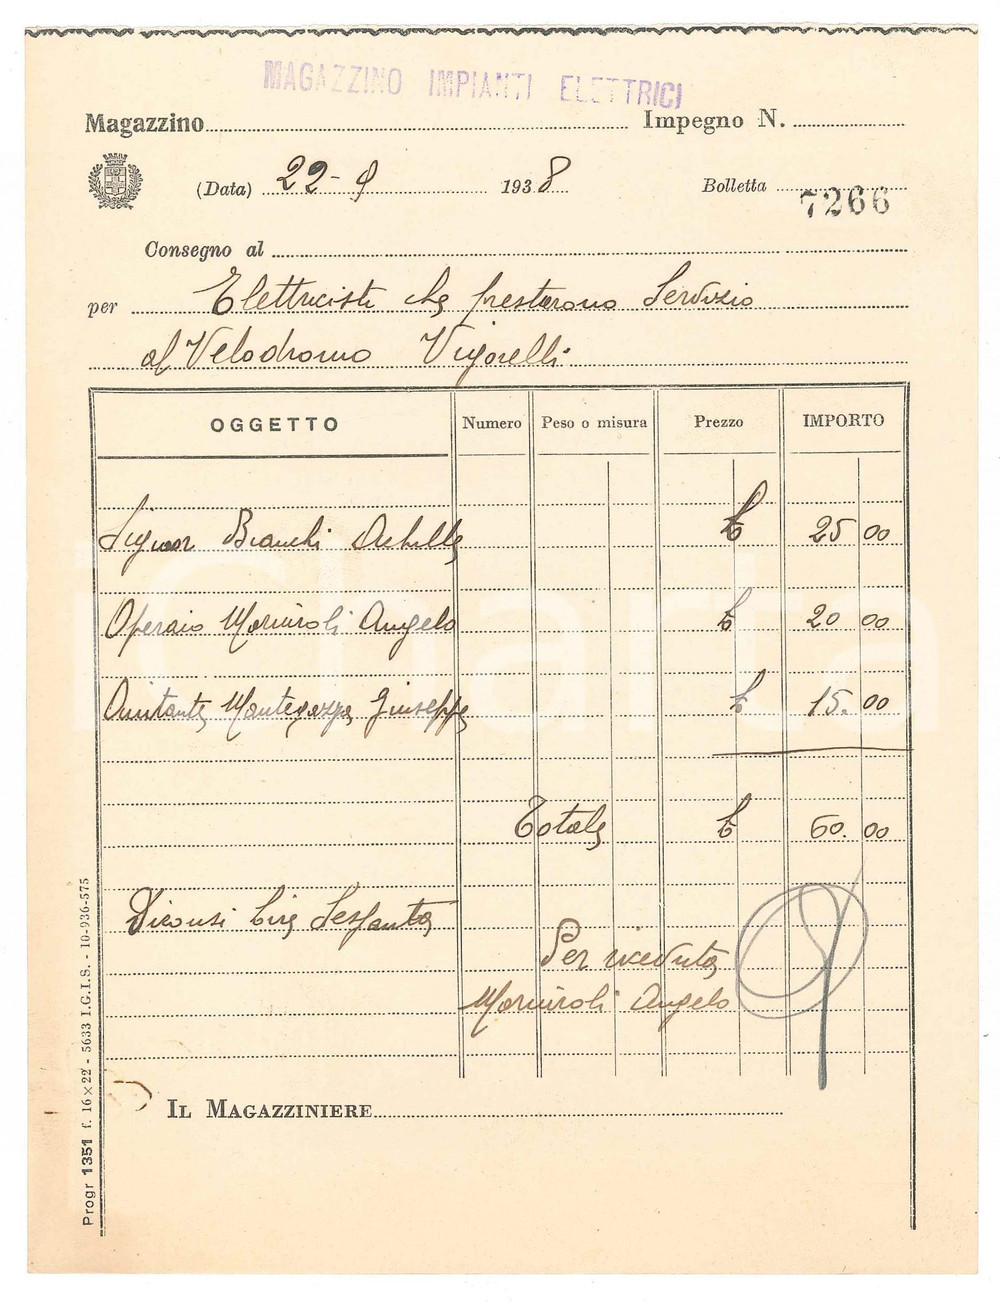 MAGAZZINO IMPIANTI ELETTRICI
Magazzino Impegno N.
(Data) 22-9 1938 Bolletta 7266
Consegno al
per Elettricisti che prestarono Servizio
al Velodromo Vigorelli
OGGETTO Numero Peso o misura Prezzo IMPORTO
Signor Bianchi Achille £ 25 00
Operaio Morniroli Angelo £ 20 00
Aiutante Mantegazza Giuseppe £ 15. 00
Totale £ 60. 00
Diconsi Lire Sessanta
Per ricevuta
Morniroli Angelo
IL MAGAZZINIERE
Progr 1351 f. 16×22 - 5633 I.G.I.S. - 10-936-575
iCharta